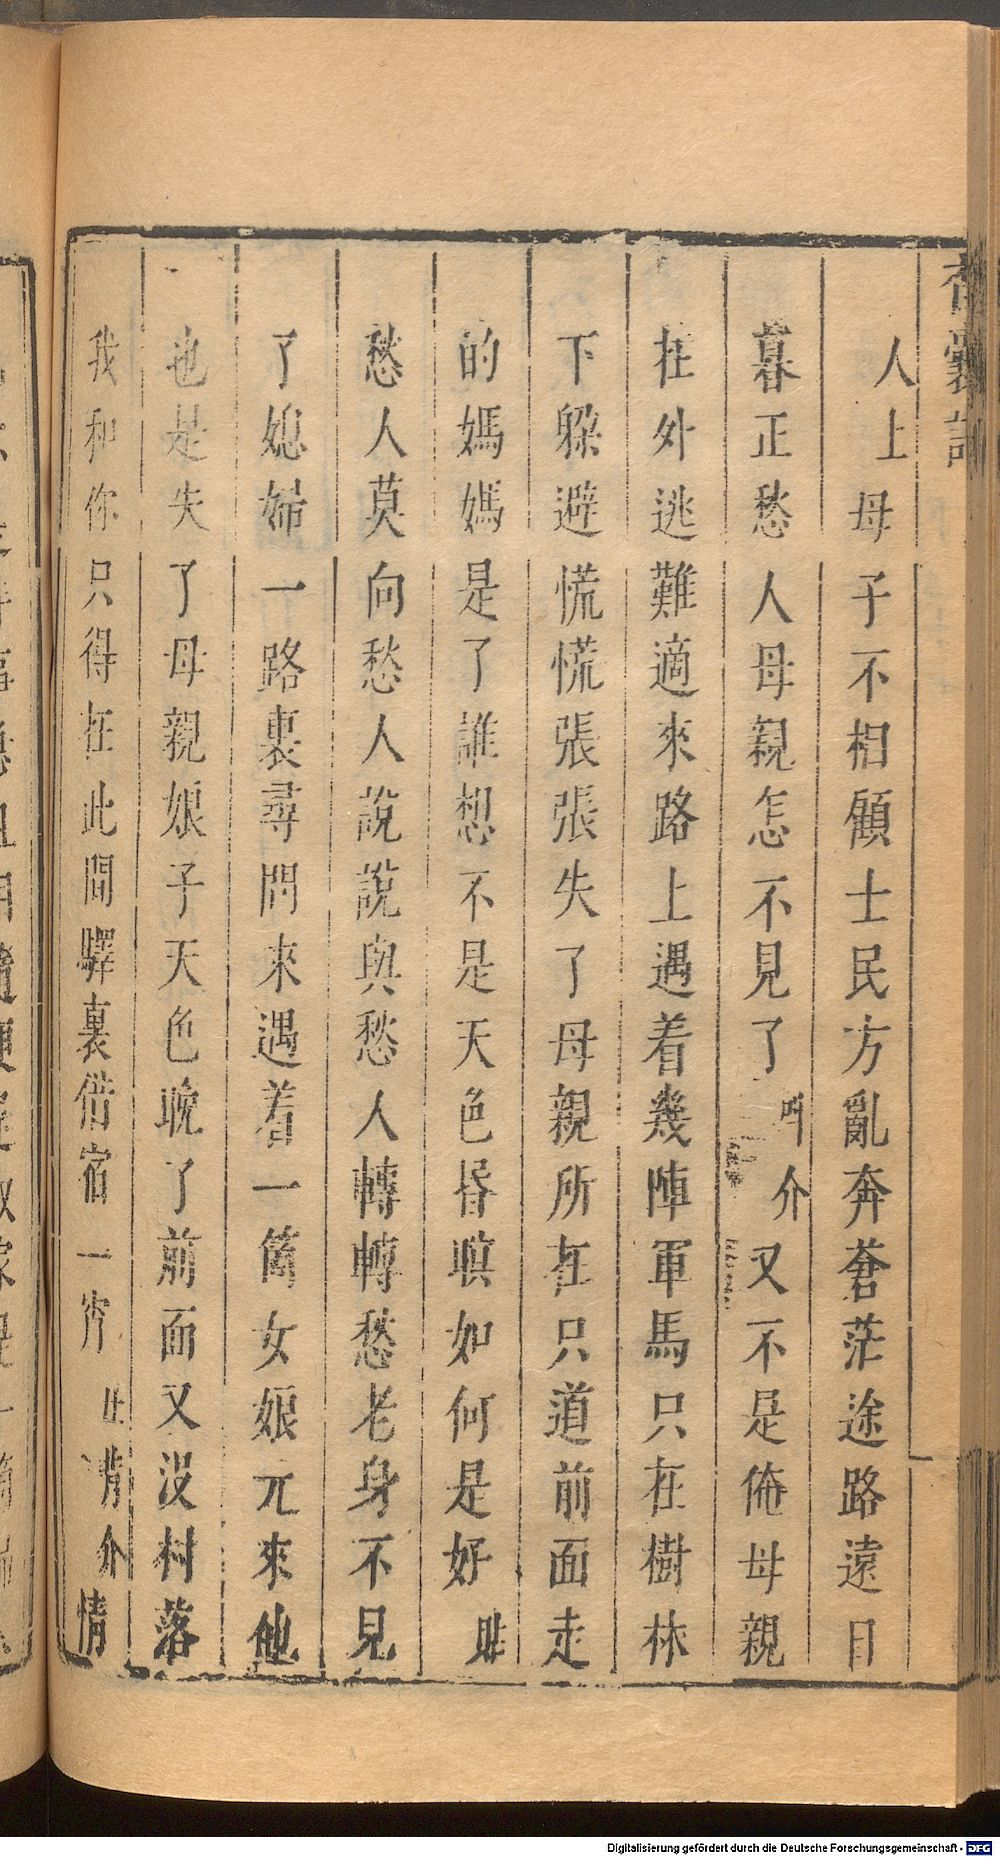 香囊記
人上母子不相顧士民方亂奔蒼茫途路遠日
暮正愁人母親怎不見了叫介又不是俺母親
在外逃難適來路上遇着幾陣軍馬只在樹林
下躱避慌慌張張失了母親所在只道前面走
的媽媽是了誰想不是天色昏暝如何是好貼
愁人莫向愁人說說與愁人轉轉愁老身不見
了媳婦一路裏尋問來遇着一箇女娘元來他
也是失了母親娘子天色晚了前面又沒村落
我和你只得在此間驛裏借宿一宵 背介情
Digitalisierung gefördert durch die Deutsche Forschungsgemeinschaft - DFG